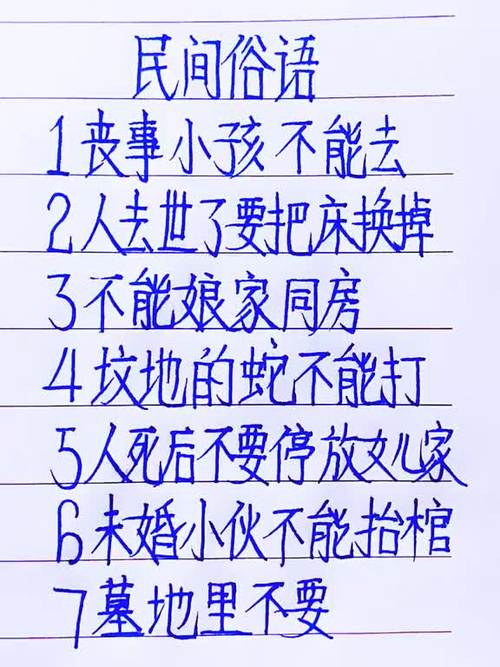 民间俗语
1丧事小孩不能去
2人去世了要把床换掉
3不能娘家同房
4坟地的蛇不能打
5人死后不要停放女儿家
6未婚小伙不能抬棺
7墓地里不要